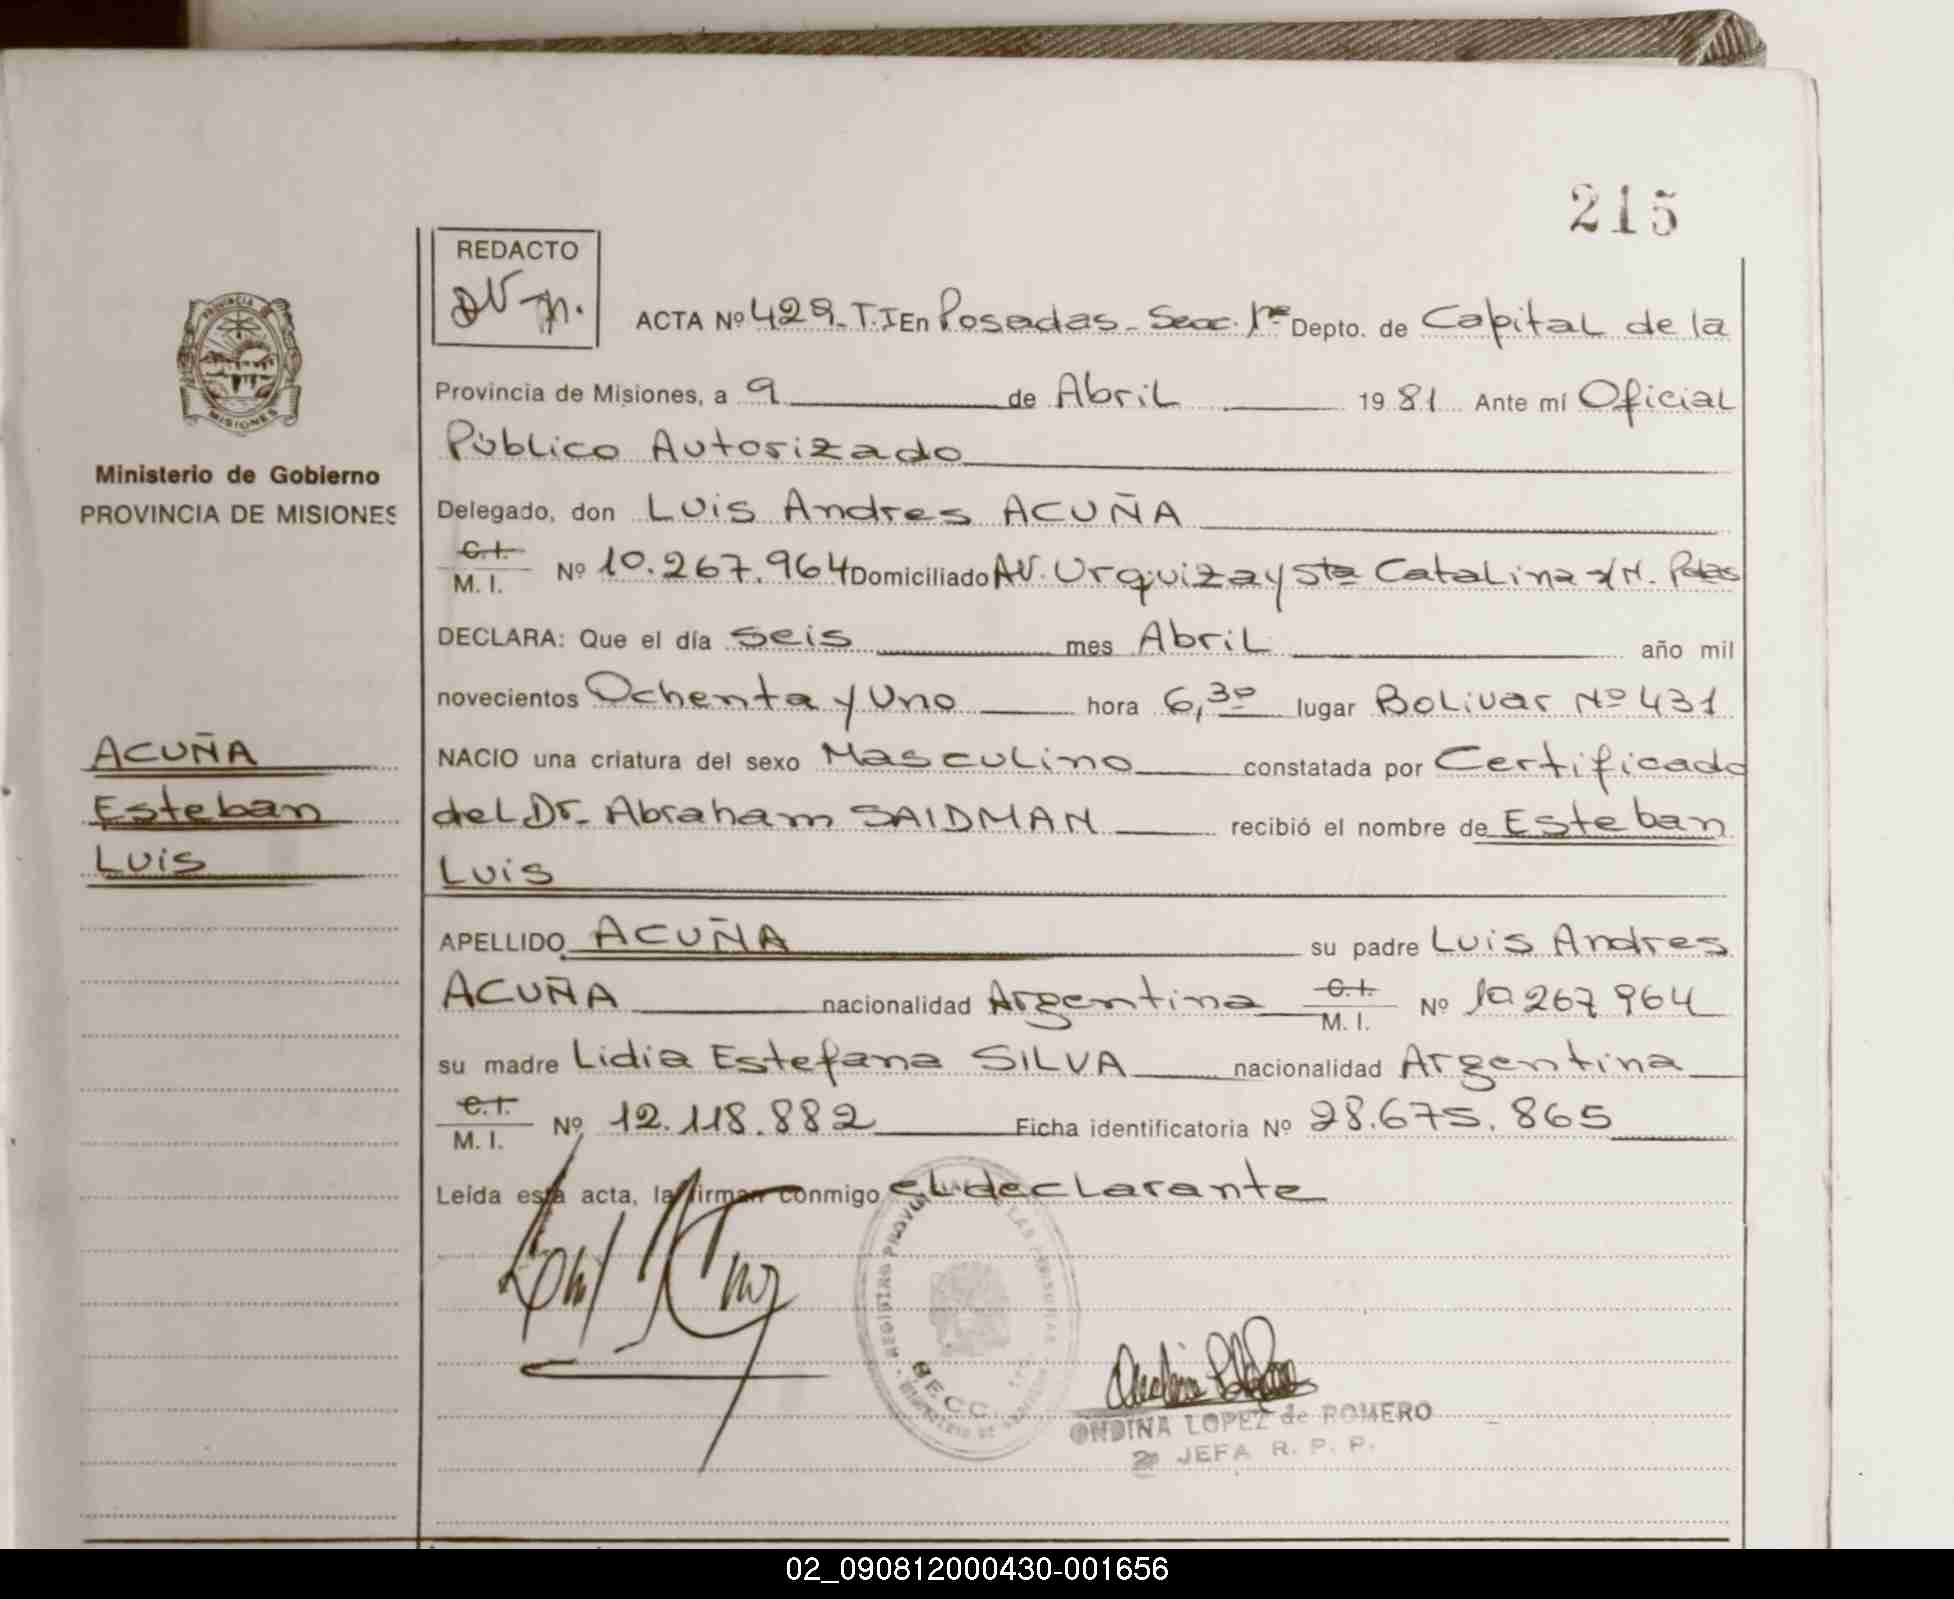 215
REDACTO
ACTA Nº 429. T.I En Posadas. Secc. 1ra Depto. de Capital de la
Provincia de Misiones, a 9 de Abril 1981 Ante mí Oficial
Público Autorizado
PROVINCIA
MISIONES
Ministerio de Gobierno
PROVINCIA DE MISIONES
Delegado, don Luis Andres ACUÑA
C.I. M.I. Nº 10.267.964 Domiciliado AV. Urquiza y Sta Catalina s/N. Pdas
DECLARA: Que el día Seis mes Abril año mil
novecientos Ochenta y Uno hora 6,30 lugar Bolivar Nº 431
ACUÑA
Esteban
Luis
NACIO una criatura del sexo Masculino constatada por Certificado
del Dr. Abraham SAIDMAN recibió el nombre de Esteban
Luis
APELLIDO ACUÑA su padre Luis Andres
ACUÑA nacionalidad Argentina C.I. M.I. Nº 10 267 964
su madre Lidia Estefana SILVA nacionalidad Argentina
C.I. M.I. Nº 12.118.882 Ficha identificatoria Nº 28.675.865
Leída esta acta, la firman conmigo el declarante
ONDINA LOPEZ de ROMERO
JEFA R. P. P.
02_090812000430-001656